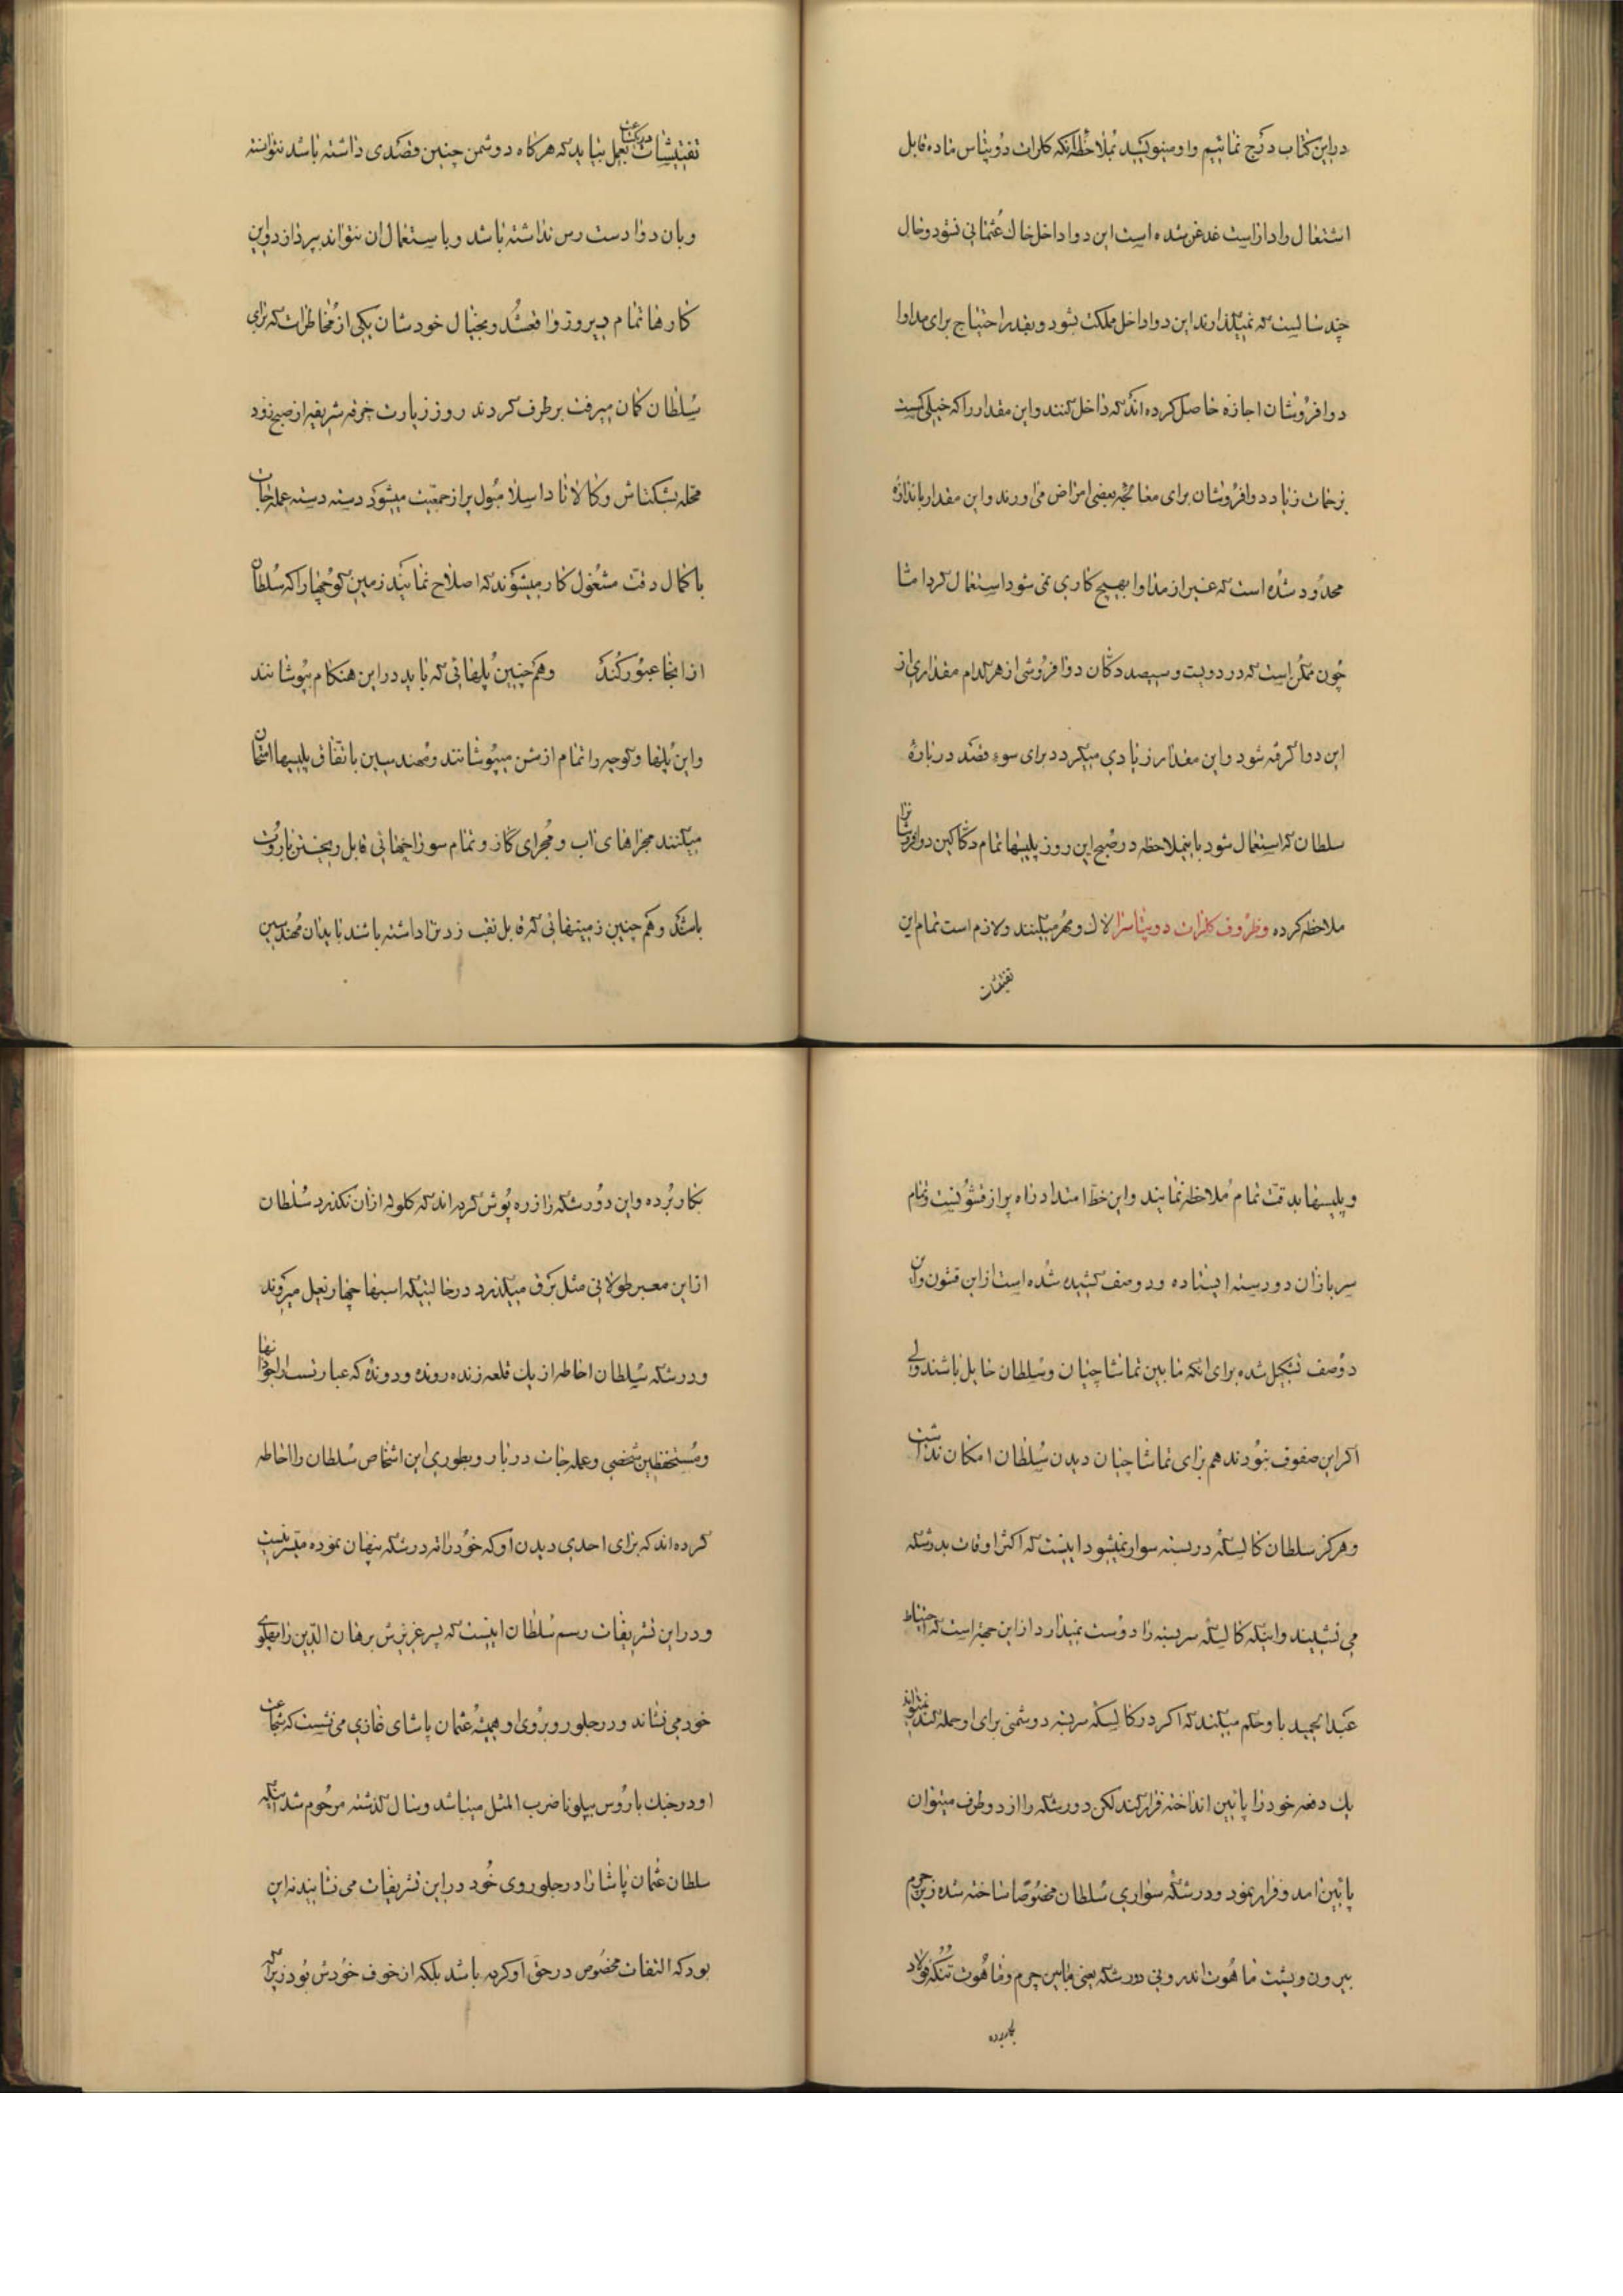 دراین کتاب درج نمائیم واو مینویسد بملاحظه آنکه کلرات دوپتاس ماده قابل
اشتعال را دارا است غدغن شده است این دوا داخل خاک عثمانی نشود و حال
چند سالیست که نمیگذارند این دوا داخل مملکت بشود و بقدر احتیاج برای مداوا
دوافروشان اجازه حاصل کرده‌اند که داخل کنند واین مقدار را که خیلی کمست
بزحمات زیاد دوافروشان برای معالجه بعضی امراض می‌اورند و این مقدار باندازهٔ
محدود شده است که غیر از مداوا بهیچ کاری نمی‌شود استعمال کرد اما
چون ممکن است که در دویست و سیصد دکان دوافروشی از هر کدام مقداری از
این دوا گرفته شود و این مقدار زیادی میگردد برای سوء قصد درباره
سلطان که استعمال شود باینملاحظه در صبح این روز پلیسها تمام دکاکین دوافروشانرا
ملاحظه کرده و ظروف کلرات دوپتاسرا لاک و مهر میکنند و لازم است تمام این
تفتیشات
تفتیشات در یکساعت بعمل بیاید که هرگاه دوشمن چنین قصدی داشته باشد نتوانسته
وبان دوا دست رس نداشته باشد و باستعمال ان نتواند بپردازد و این
کارها تمام دیروز واقعشد و بخیال خودشان یکی از مخاطرات که برای
سلطان گمان میرفت برطرف کردند روز زیارت خرقه شریفه از صبح زود
محله بشکتاش و کالاتا داسلامبول پر از جمعیت میشود دسته دسته عمله‌جات
باکمال دقت مشغول کار میشوند که اصلاح نمایند زمین کوچها را که سلطان
از انجا عبور کند و هم چنین پلهائی که باید در این هنگام بپوشانند
و این پلها و کوچه را تمام از شن میپوشانند و مهندسین باتفاق پلیسها امتحان
میکنند مجراهای اب و مجرای گاز و تمام سوراخهائی قابل ریختن باروت
باشد و هم چنین زمینهائی که قابل نقب زدن را داشته باشند باید ان مهندسین
و پلیسها بدقت تمام ملاحظه نمایند و این خط امتداد راه پر از قشونست و تمام
سربازان دو رسته ایستاده و دو صف کشیده شده است از این قشون و این
دو صف تشکیل شده برای انکه مابین تماشاچیان و سلطان حایل باشند ولی
اگر این صفوف نبودند هم برای تماشاچیان دیدن سلطان امکان نداشت
و هرگز سلطان کالسکه دربسته سوار نمیشود اینست که اکثر اوقات بدرشکه
می نشیند و اینکه کالسکه سربسته را دوست نمیدارد از این جهة است که احتیاط
عبدالحمید باو حکم میکند که اگر در کالسکه سربسته دوشمنی برای او حمله کند نمیتواند
یک دفعه خود را پائین انداخته فرار کند لکن درشکه را از دو طرف میتوان
پائین آمد و فرار نمود و درشکه سواری سلطان مخصوصا ساخته شده زیر چرم
بیرون و پشت ماهوت اندرونی درشکه یعنی مابین چرم و ماهوت تنکه فولاد
بکاربرده
بکار برده و این درشکه را زره پوش کرده اند که گلوله از ان نگذرد سلطان
از این معبر طولانی مثل برق میگذرد در حالتیکه اسبها چهار نعل میروند
و درشکه سلطان احاطه از یک قلعه زنده رونده و دونده که عبارتست از اجودانها
و مستحفظین شخصی و عمله‌جات دربار و بطوری این اشخاص سلطان را احاطه
کرده اند که برای احدی دیدن او که خود را ته درشکه پنهان نموده میسر نیست
و در این تشریفات رسم سلطان اینست که پسر عزیزش برهان الدین را پهلوی
خود می نشاند و در جلو روبروی او همیشه عثمان پاشای غازی می نشست که شجاعت
او در جنگ با روس بپلونا ضرب المثل میباشد و سال گذشته مرحوم شد اینکه
سلطان عثمان پاشا را در جلو روی خود در این تشریفات می نشانید نه این
بود که التفات مخصوص در حق او کرده باشد بلکه از خوف خودش بود زیرا که